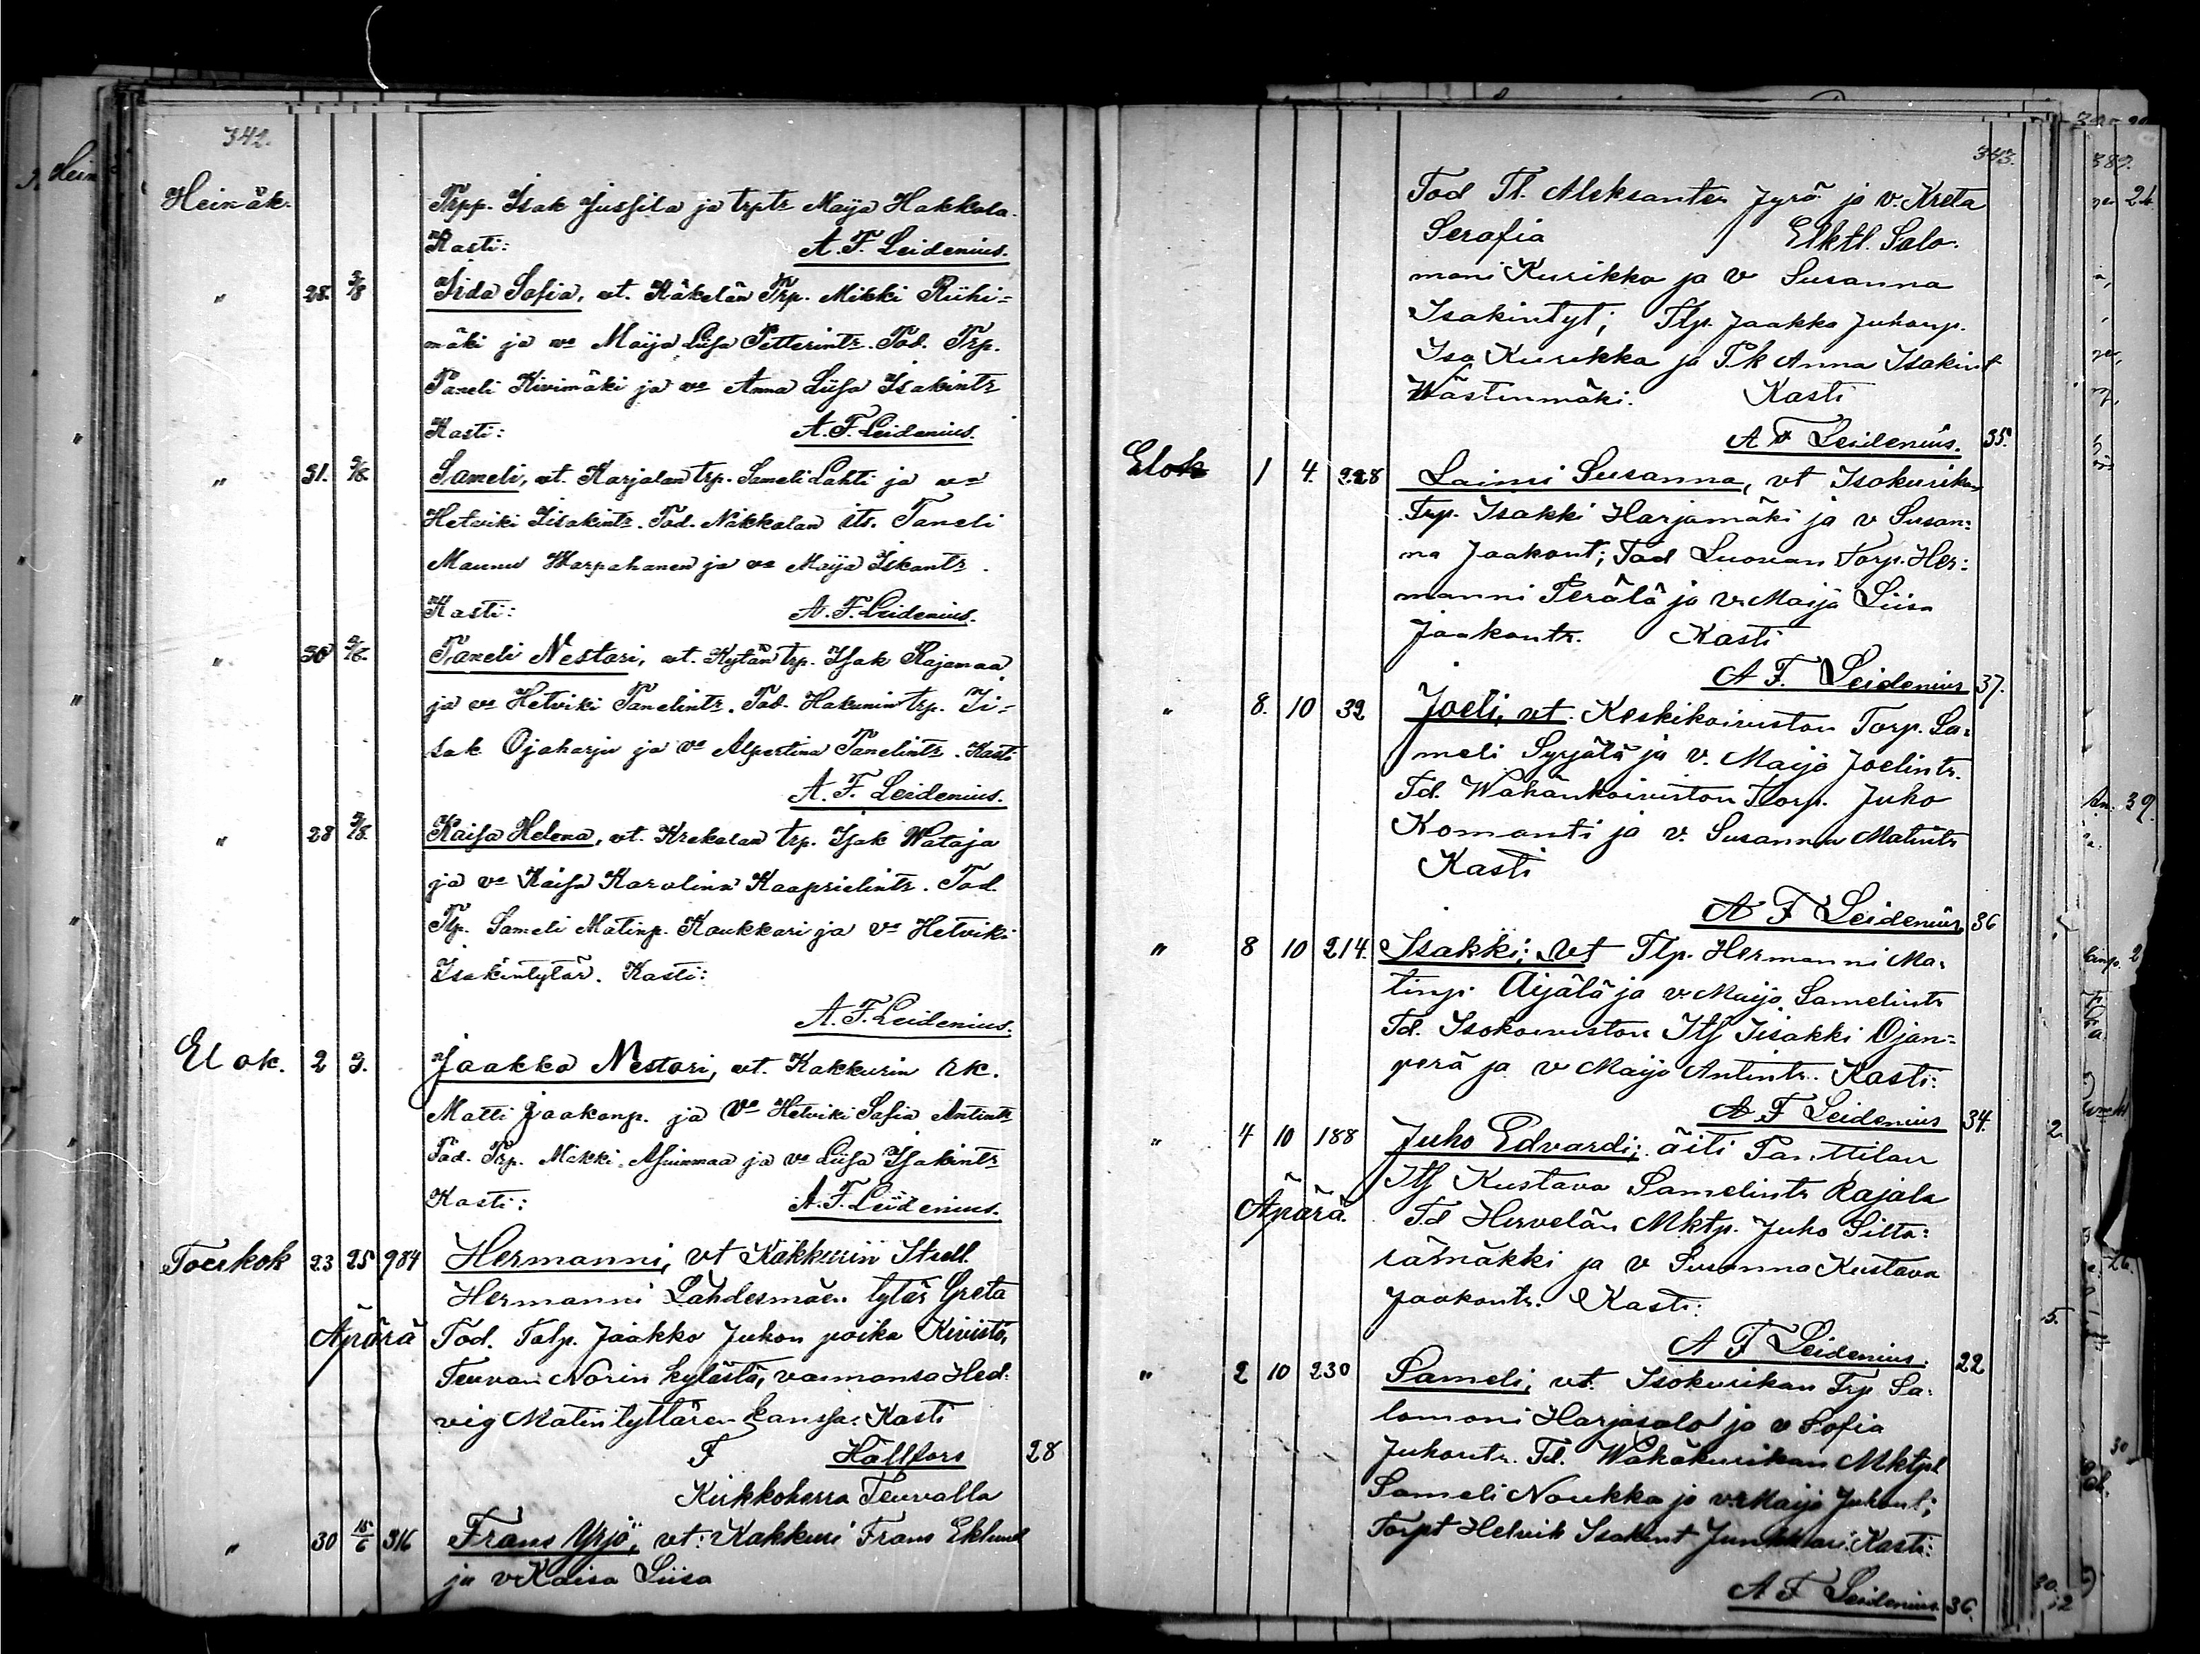 342.
Heinäk. Trpp. Isak Jussila ja trptr Maija Hakkola.
Kasti: A. F. Leidenius.
" 28. 3/8 Iida Sofia, vt. Käkelän Trp. Mikki Riihi=
mäki ja vo Maija Liisa Petterintr. Tod. Trp.
Taneli Kivimäki ja vo Anna Liisa Isakintr
Kasti: A. F. Leidenius.
" 31. Sameli, vt. Karjalan trp. Sameli Lahti ja vo
Hetviki Iisakintr. Tod. Nikkolan its. Taneli
Maunu Warpahanen ja vo Maija Iskantr.
Kasti: A. F. Leidenius.
" 30 Taneli Nestori, vt. Kytän trp. Isak Rajamaa
ja vo Hetviki Tanelintr. Tod. Hakunin trp. Ii=
sak Ojaharju ja vo Alpertina Tanelintr. Kasti
A. F. Leidenius.
" 28 Kaisa Helena, vt. Krekolan trp. Isak Wataja
ja vo Kaisa Karolina Kaaprielintr. Tod.
Tlp. Sameli Matinp. Kaukkari ja vo Hetviki
Isakintytär. Kasti:
A. F. Leidenius.
Elok. 2 3. Jaakko Nestori, vt. Kakkurin rk.
Matti Jaakonp. ja Vo Hetviki Sofia Antintr
Tod. Trp. Mikki Asuinmaa ja vo Liisa Isakintr
Kasti: A. F. Leidenius.
Toukok 23 25 984 Hermanni, vt Käkkurin Itsell.
Hermanni Lähdesmäen tytär Greta
Äpärä Tod. Talp. Jaakko Juhon poika Kivistö,
Teuvan Norin kylästä, vaimonsa Hed:
vig Matin tyttären kanssa. Kasti
F Hällfors 28
Kirkkoherra Teuvalla
" 30 15/6 316 Frans Yrjö, vt: Kakkuri Frans Eklund
ja v Kaisa Liisa
343.
Tod Tl. Aleksanter Jyrä ja v. Kreta
Serafia Elktl. Salo-
moni Kurikka ja v Susanna
Isakintyt; Tlp. Jaakko Juhonp.
Iso Kurikka ja P.k Anna Isakint
Wästinmäki. Kasti
A F Leidenius. 35.
Elok 1 4. 228 Laini Susanna, vt Isokurikan
Trp. Isakki Harjamäki ja v Susan:
na Jaakont; Tod Luovan Torp. Her:
manni Perälä ja v. Maija Liisa
Jaakontr. Kasti
A F. Leidenius 37.
" 8. 10 32 Joeli, vt. Keskikoiviston Torp. Sa=
meli Syrjälä ja v. Maija Joelintr.
Td. Wähänkoiviston Torp. Juho
Komanti ja v. Susanna Matintr
Kasti
A F Leidenius 36
" 8 10 214. Isakki; vt Tlp. Hermanni Ma-
tinp. Äijälä ja v. Maija Samelintr
Td. Isokoiviston Its Iisakki Ojan=
perä ja v Maija Antintr. Kasti:
A F Leidenius 34.
" 4 10 188 Juho Edvardi; äiti Panttilan
Its Kustava Samelintr Rajala
Äpärä. Td Hervelän Mktp. Juho Silta:
rämäkki ja v Susanna Kustava
Jaakontr. Kasti:
A F Leidenius. 22
" 2 10 230 Sameli, vt. Isokurikan Trp Sa:
lomoni Harjasalo ja v Sofia
Juhontr. Td. Wähäkurikan Mktpl
Sameli Noukka ja v. Maija Juhont;
Torpt Hetvik Isakint Junkkari. Kasti:
A F Leidenius. 36.